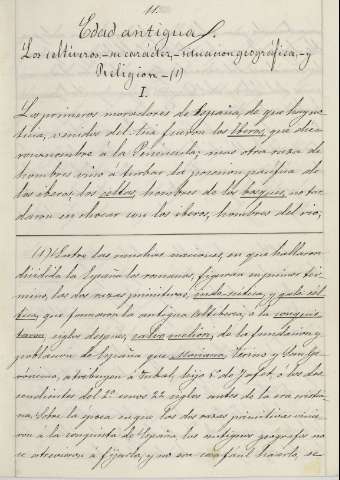 11.
Edad antigua.
Los celtíveros,- su carácter,- situacion geográfica,- y
Religion - (1)
I.
Los primeros moradores de España, de que hay no-
ticia, venidos del Asia fueron los iberos, que die-
ron nombre á la Península; mas otra raza de
hombres vino á turbar la posesion pacífica de
los iberos, los celtas, hombres de los bosques, no tar-
daron en chocar con los iberos, hombres del rio,
(1) Entre las muchas naciones, en que hallaron
dividida la España los romanos, figuran en primer tér-
mino, las dos razas primitivas, indo-scítica, y galo-cél-
tica, que formaron la antigua celtiberia, á la conquis-
taron, siglos despues, de la fundacion y
poblacion de España que Mariana, Ferreras y San Ge-
rónimo, atribuyen á Tubal, hijo 5º de Jafet, ó los des-
cendientes del 2º unos 22 siglos antes de la era cristia-
na. Sobre la epoca en que las dos razas primitivas vinie-
ron á la conquista de España, los antiguos geógrafos no
se atrevieron á fijarla, y no era cosa facil hacerlo, se-